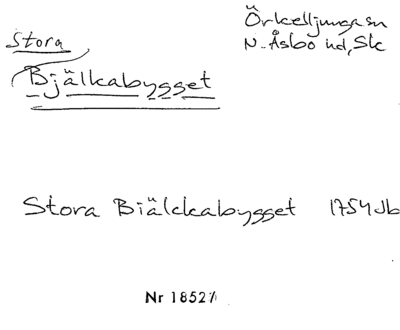 Stora
Bjälkabygget
Örkelljunga sn
N. Åsbo hd, Sk
Stora Biälckabygget 1754 Jb
Nr 18527